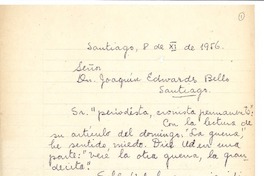 1
Santiago, 8 de XI de 1956.
Señor
Dn. Joaquín Edwards Bello
Santiago.
Sr. "periodista, cronista permanente":
Con la lectura de
su artículo del domingo, "La guerra",
he sentido miedo. Dice Ud en una
parte: "Veré la otra guerra, la gran